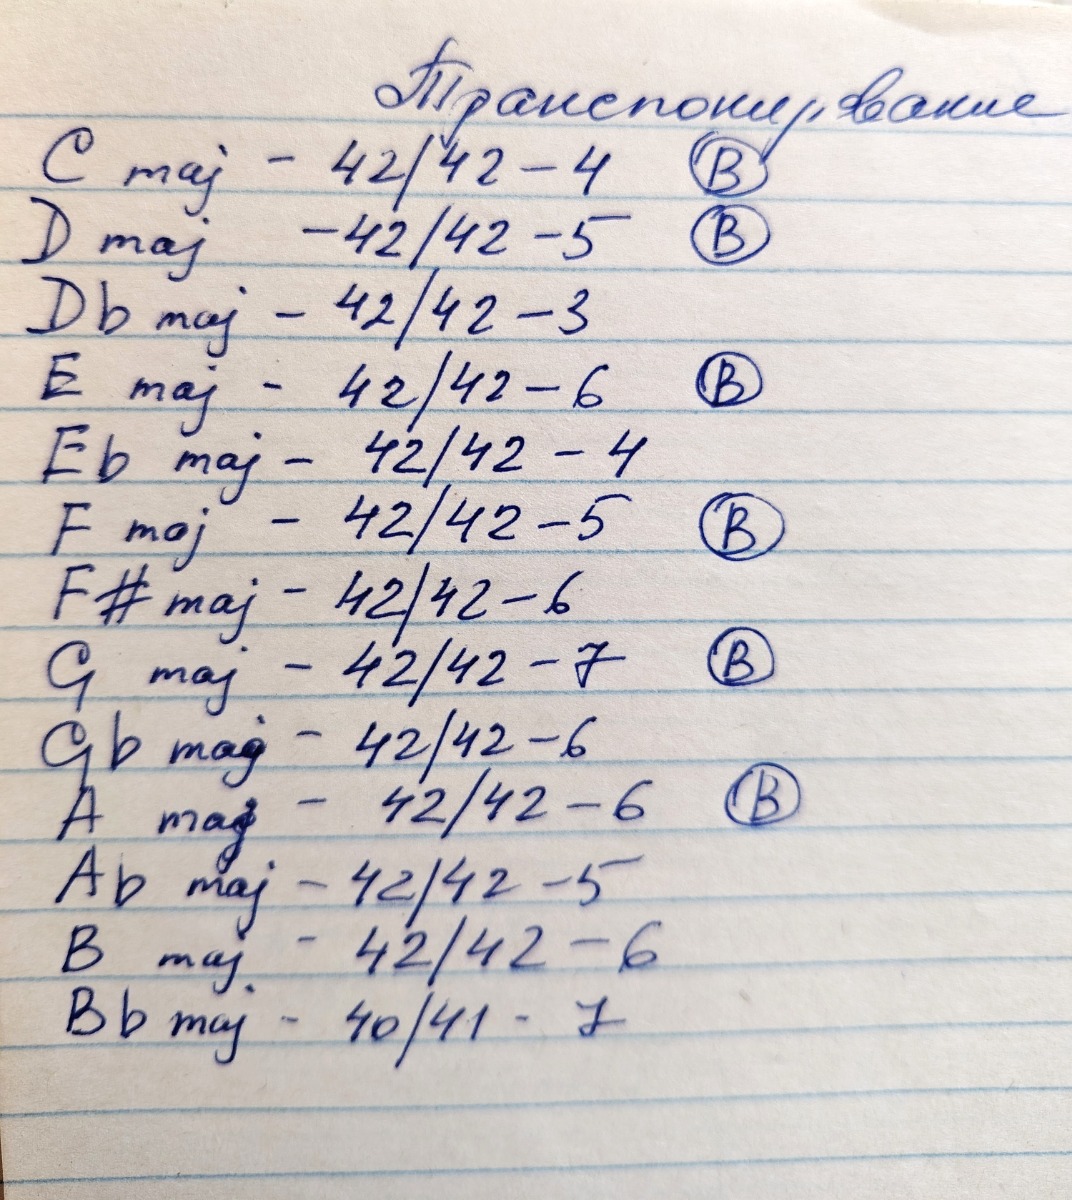 Транспонирование
C maj - 42/42 - 4 B
D maj - 42/42 - 5 B
Db maj - 42/42 - 3
E maj - 42/42 - 6 B
Eb maj - 42/42 - 4
F maj - 42/42 - 5 B
F# maj - 42/42 - 6
G maj - 42/42 - 7 B
Gb maj - 42/42 - 6
A maj - 42/42 - 6 B
Ab maj - 42/42 - 5
B maj - 42/42 - 6
Bb maj - 40/41 - 7